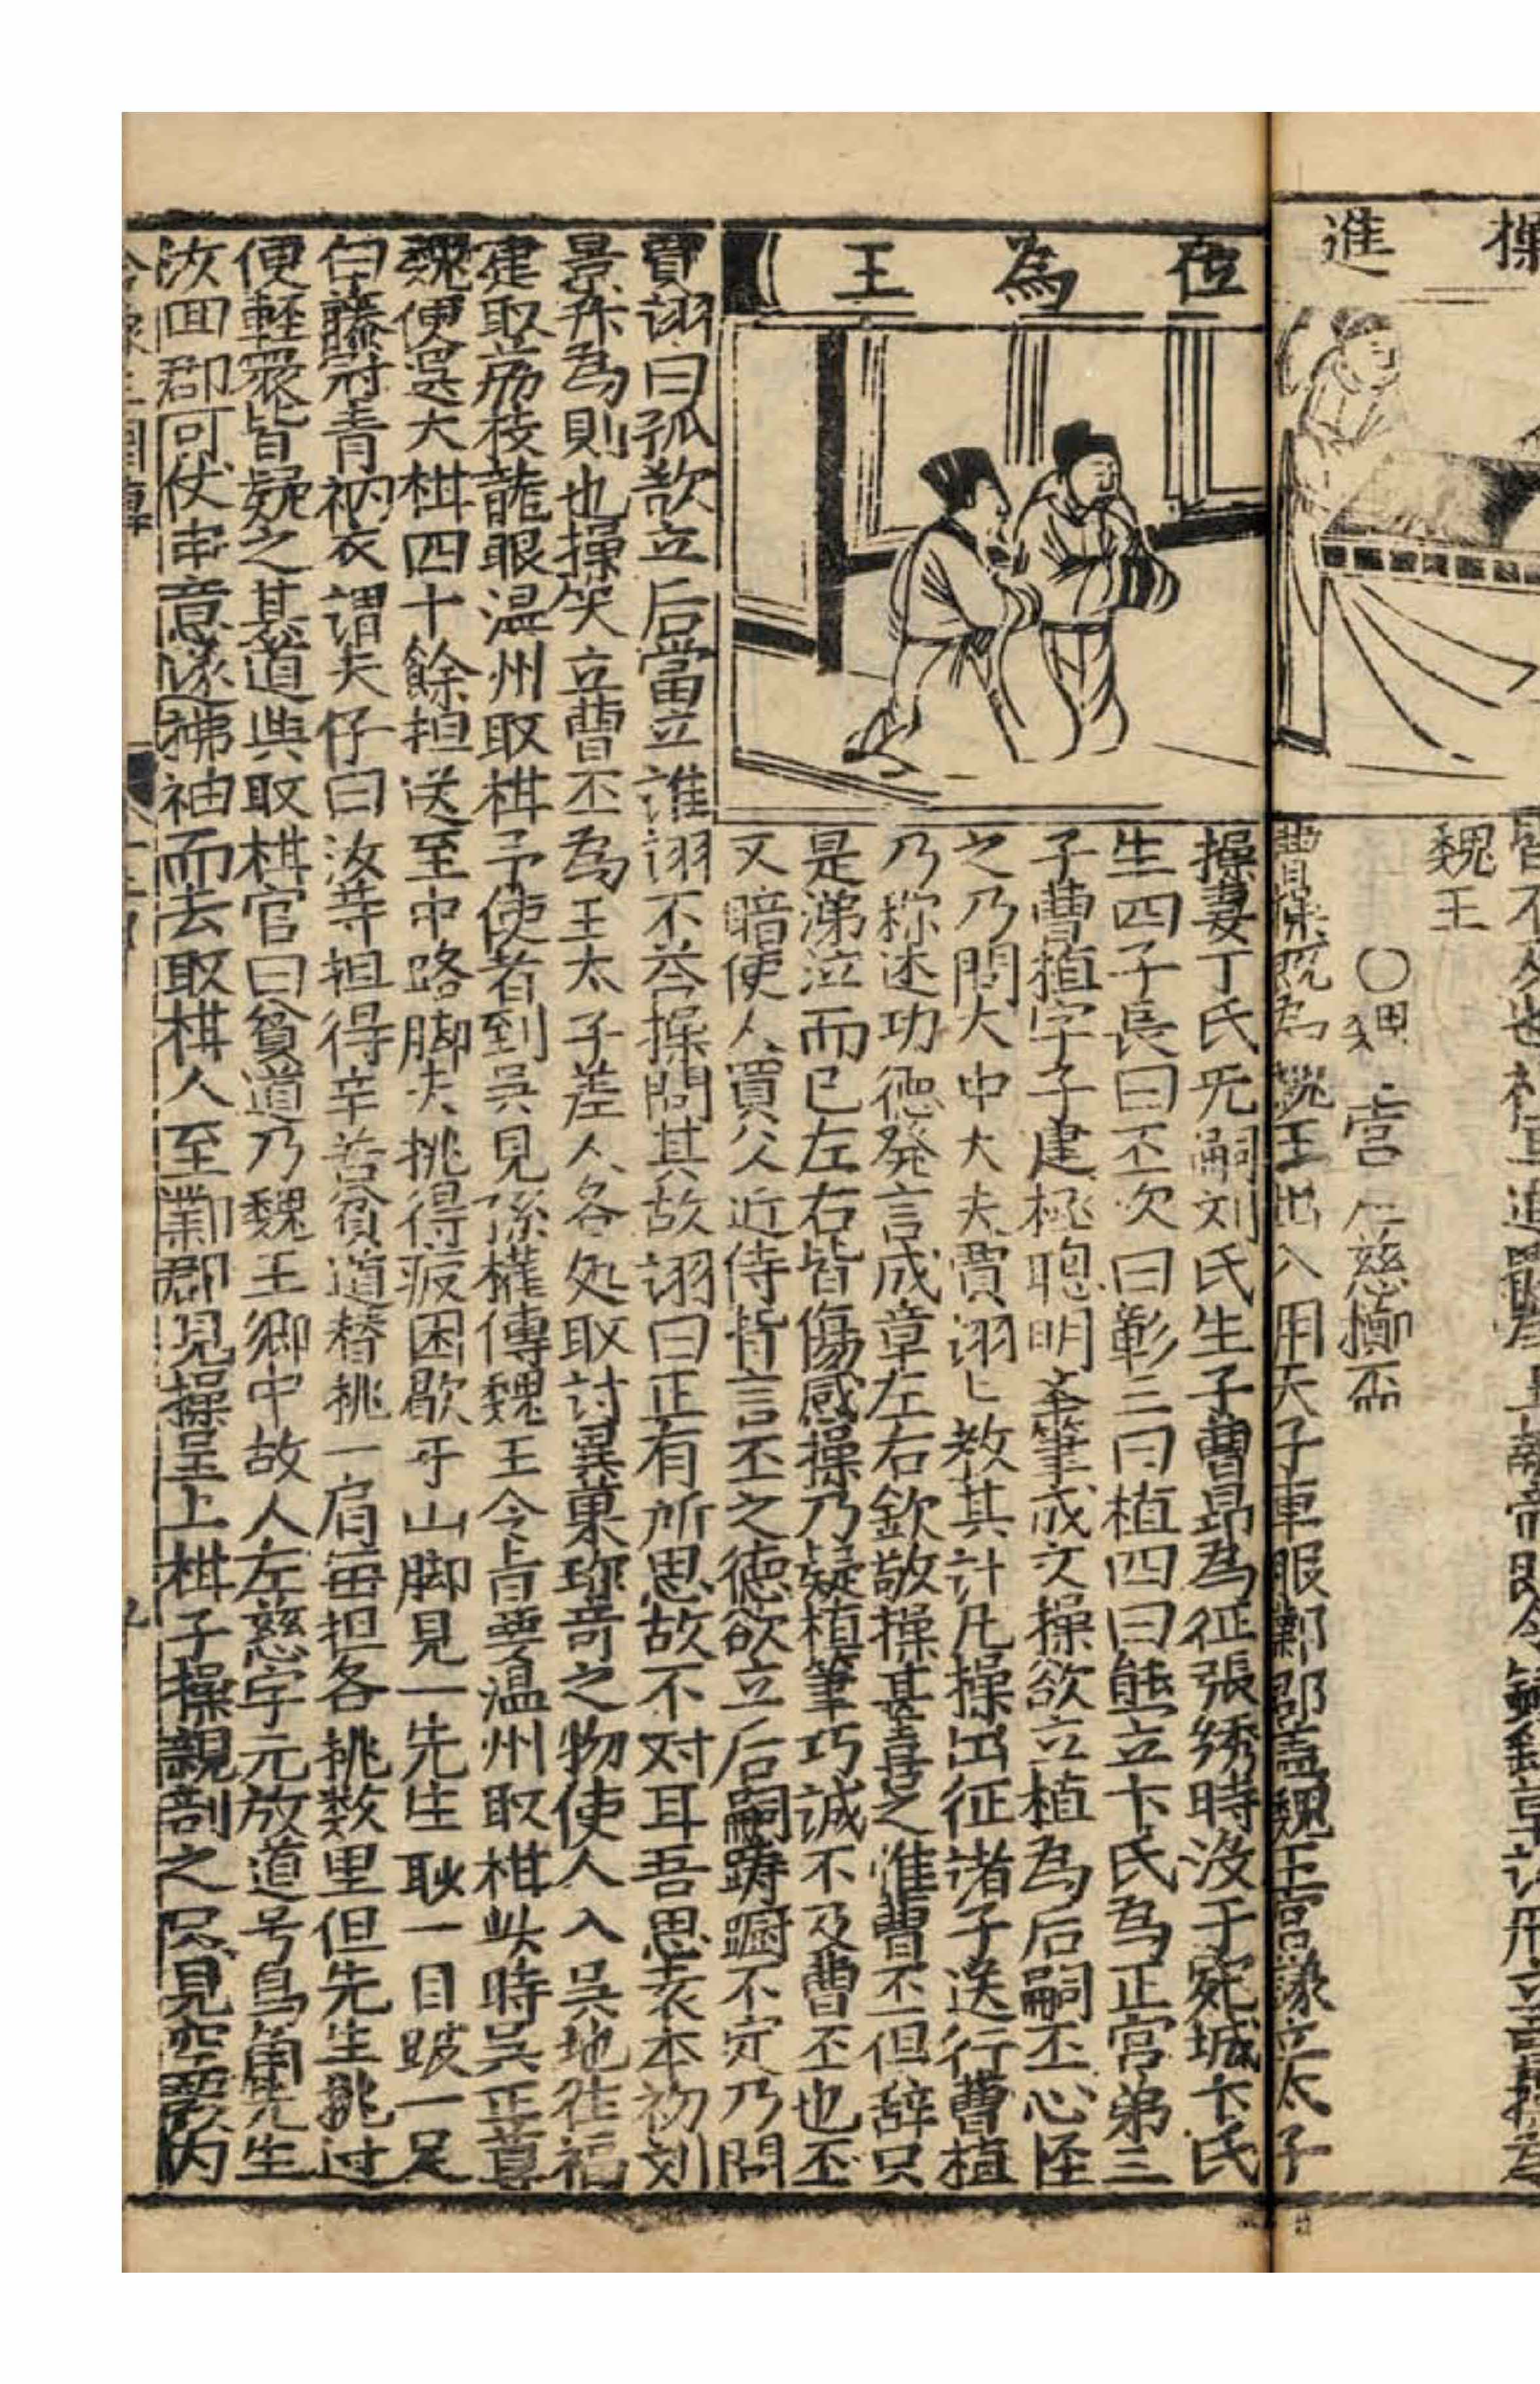 操進
位為王
魏王
○魏王宮左慈擲盃
曹操既為魏王出入用天子車服鄴郡盖魏王宮議立太子
操妻丁氏旡嗣刘氏生子曹昂為征張綉時沒于宛城卞氏
生四子長曰丕次曰彰三曰植四曰熊立卞氏為正宮弟三
子曹植字子建極聰明筆成文操欲立植為后嗣丕心怪
之乃問大中大夫賈詡匕教其計凡操出征諸子送行曹植
乃称述功德発言成章左右欽敬操甚喜之惟曹丕但辞只
是涕泣而已左右皆傷感操乃疑植筆巧誠不及曹丕也丕
又暗使人買父近侍皆言丕之德欲立后嗣躊躕不定乃問
賈詡曰孤欲立后當立誰詡不荅操問其故詡曰正有所思故不对耳吾思袁本初刘
景升為則也操笑立曹丕為王太子差人各処取討異菓珎奇之物使人入吳地徃福
建取荔枝龍眼温州取柑子使者到吳見孫權傳魏王令旨要温州取柑此時吳正尊
魏便選大柑四十餘担送至中路脚夫挑得疲困歇于山脚見一先生眇一目跛一足
白藤冠青衲衣謂夫仔曰汝等担得辛苦貧道替挑一肩每担各挑数里但先生挑过
便輕眾皆疑之其道與取柑官曰貧道乃魏王鄉中故人左慈字元放道号烏角先生
汝回郡可伏申意遂拂袖而去取柑人至鄴郡見操呈上柑子操親剖之只見空殼内